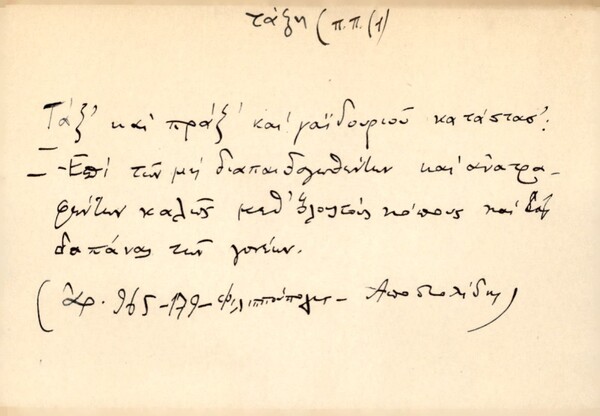 τάξη (π.π.(1)
Τάξ' και πράξ' και γαϊδουριού κατάστασ':
- Επί των μη διαπαιδαγωθέντων και ανατρα-
φέντων καλώς μεθ' όλους τους κόπους και τας
δαπάνας των γονέων.
(αρ. 965-179- Φιλιππούπολις - Αποστολίδης)